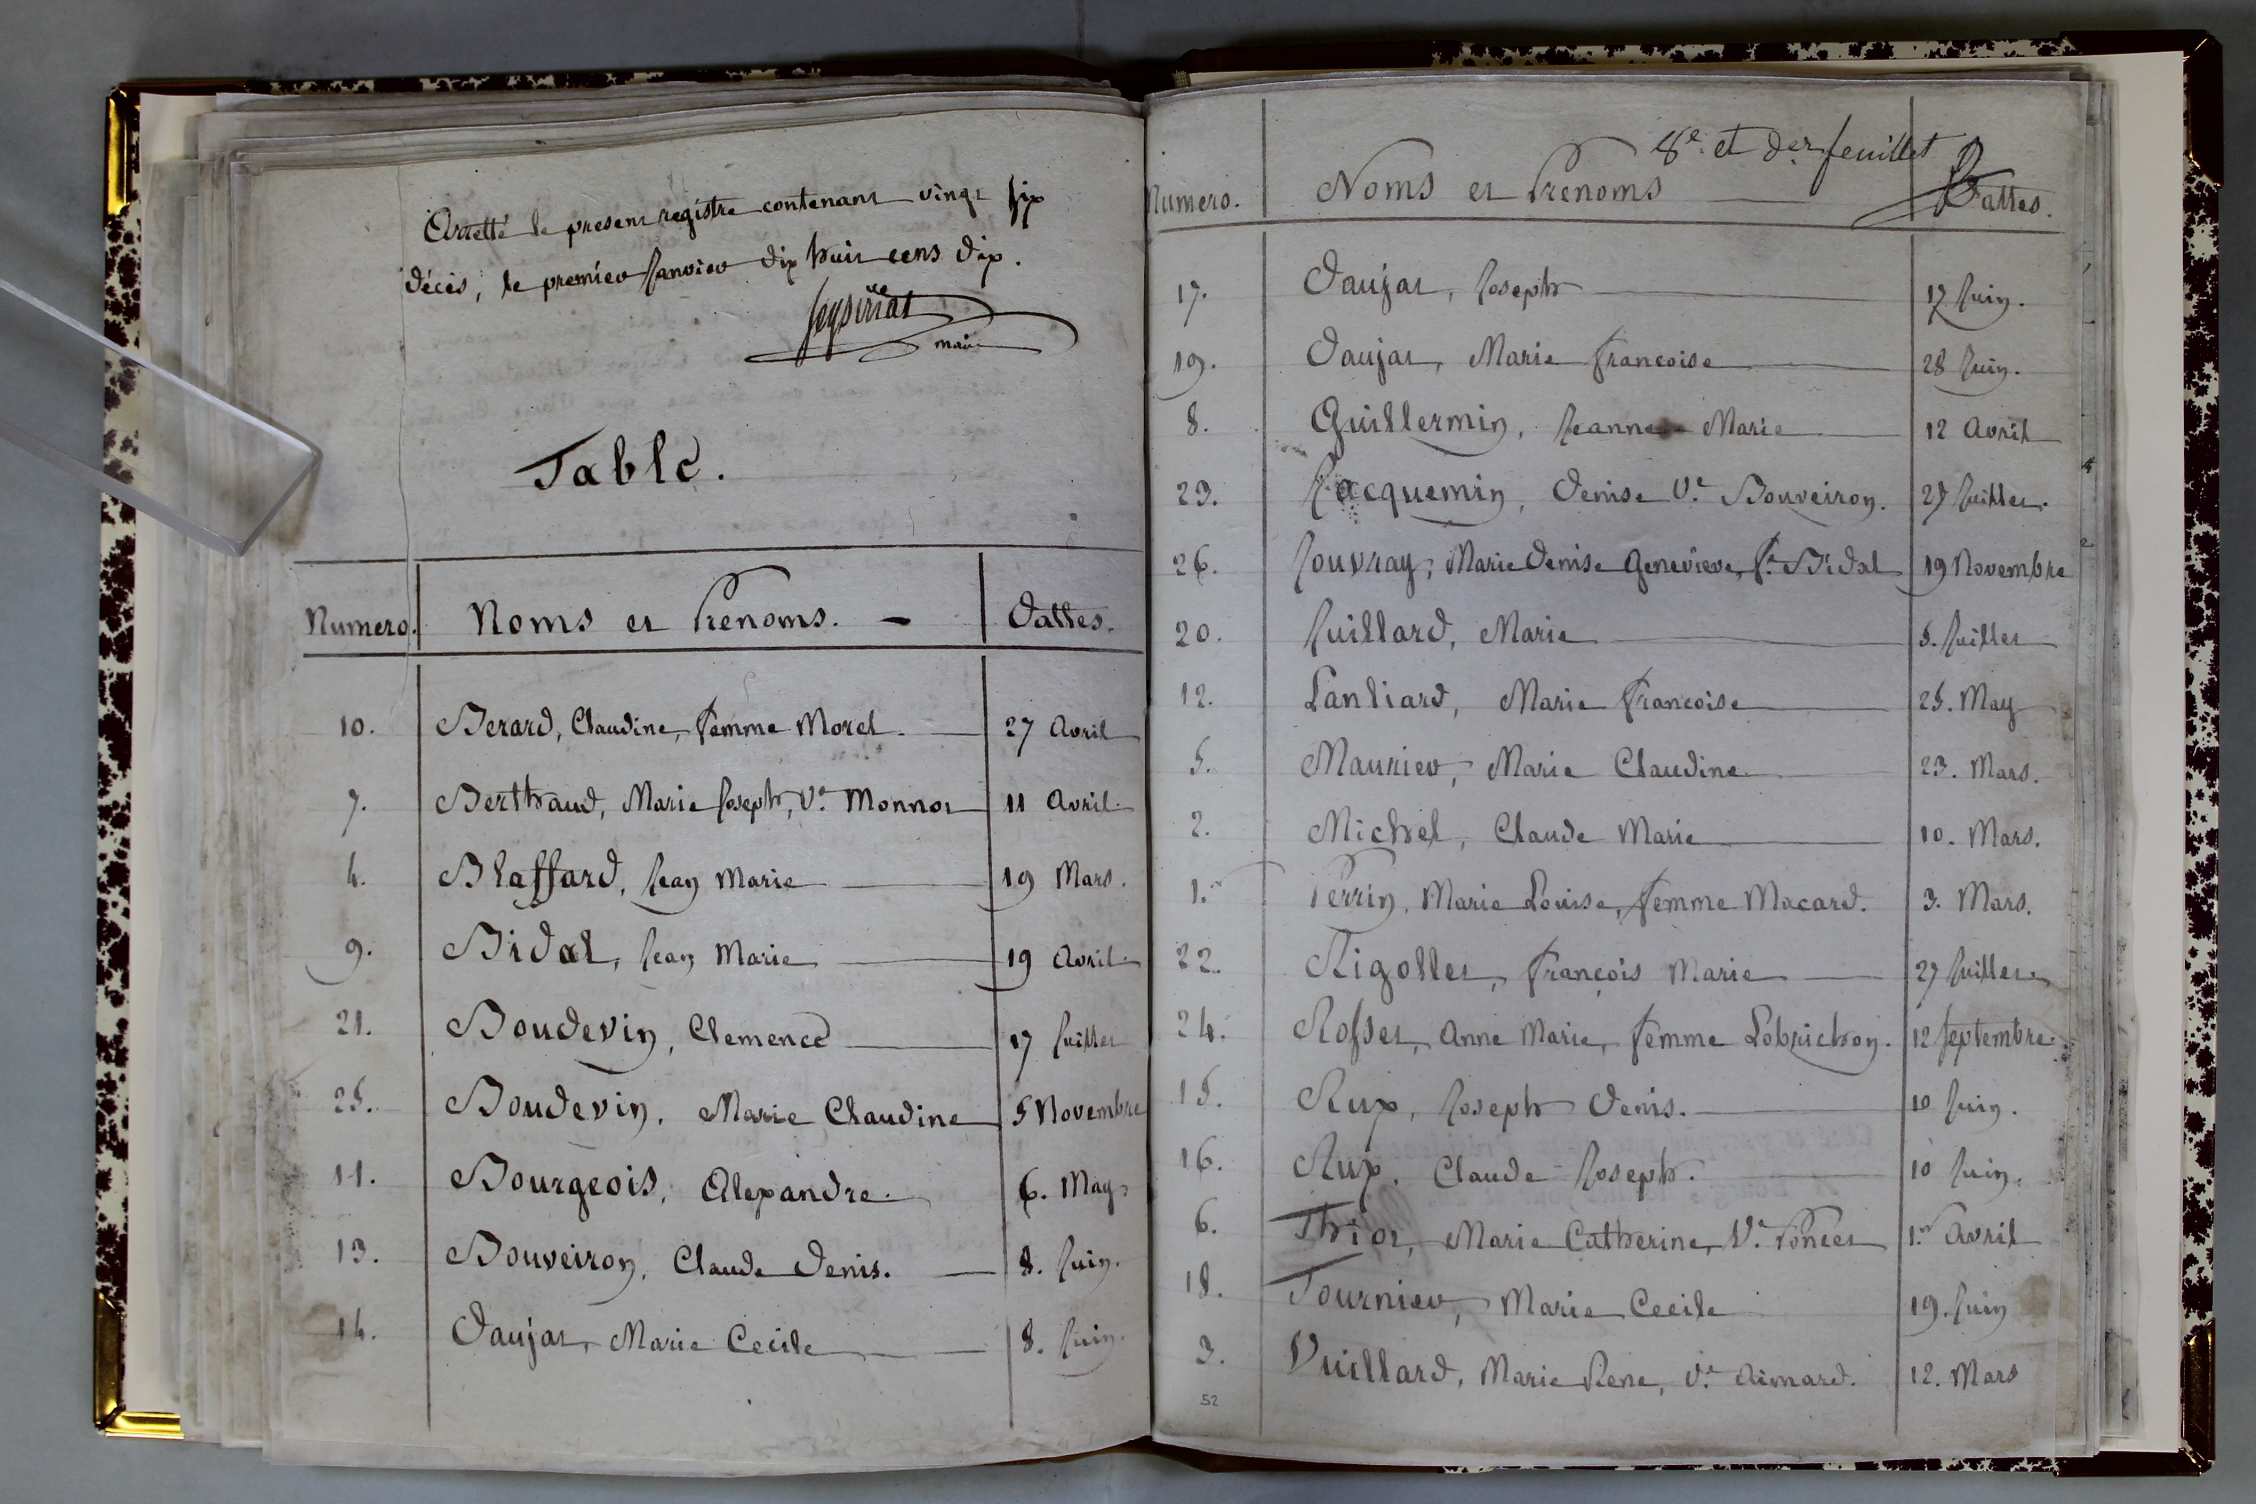 Arretté le present registre contenant vingt six
décès, le premier Janvier dix huit cens dix.
maire
Table.
Numero. Noms et Prenoms. Dattes.
10. Berard, Claudine, femme Morel. 27 Avril
7. Berthaud, Marie Joseph, Ve. Monnot 11 Avril.
4. Blaffard, Jean Marie 19 Mars.
9. Bidal, Jean Marie 19 Avril.
21. Boudevin, Clemence 17 Juillet
25. Boudevin, Marie Claudine 5 Novembre
11. Bourgeois, Alexandre. 6. May.
13. Bouveiron, Claude Denis. 8. Juin.
14. Daujat, Marie Cecile 8. Juin.
8e. et der feuillet
Numero. Noms et Prenoms Dattes.
17. Daujat, Joseph 17 Juin.
19. Daujat, Marie francoise 28 Juin.
8. Guillermin, Jeanne Marie 12 Avril
23. Jacquemin, Denise Ve. Bouveiron. 27 Juillet.
26. Jouvray, Marie Denise Genevieve, fe. Bidal 19 Novembre
20. Juillard, Marie 5. Juillet
12. Lanliard, Marie francoise 25. May
5. Maurier, Marie Claudine 23. Mars.
2. Michel, Claude Marie 10. Mars.
1.er Perrin, Marie Louise, femme Macard. 3. Mars.
22. Rigollet, françois Marie 27 Juillet
24. Rosset, Anne Marie, femme Lobrichon. 12 Septembre.
15. Rux, Joseph Denis. 10 Juin.
16. Rux, Claude Joseph. 10 Juin.
6. Thiot, Marie Catherine, Ve. Poncet 1.er Avril
18. Tournier, Marie Cecile 19. Juin
3. Vuillard, Marie Rene, Ve. Aimard. 12. Mars
52